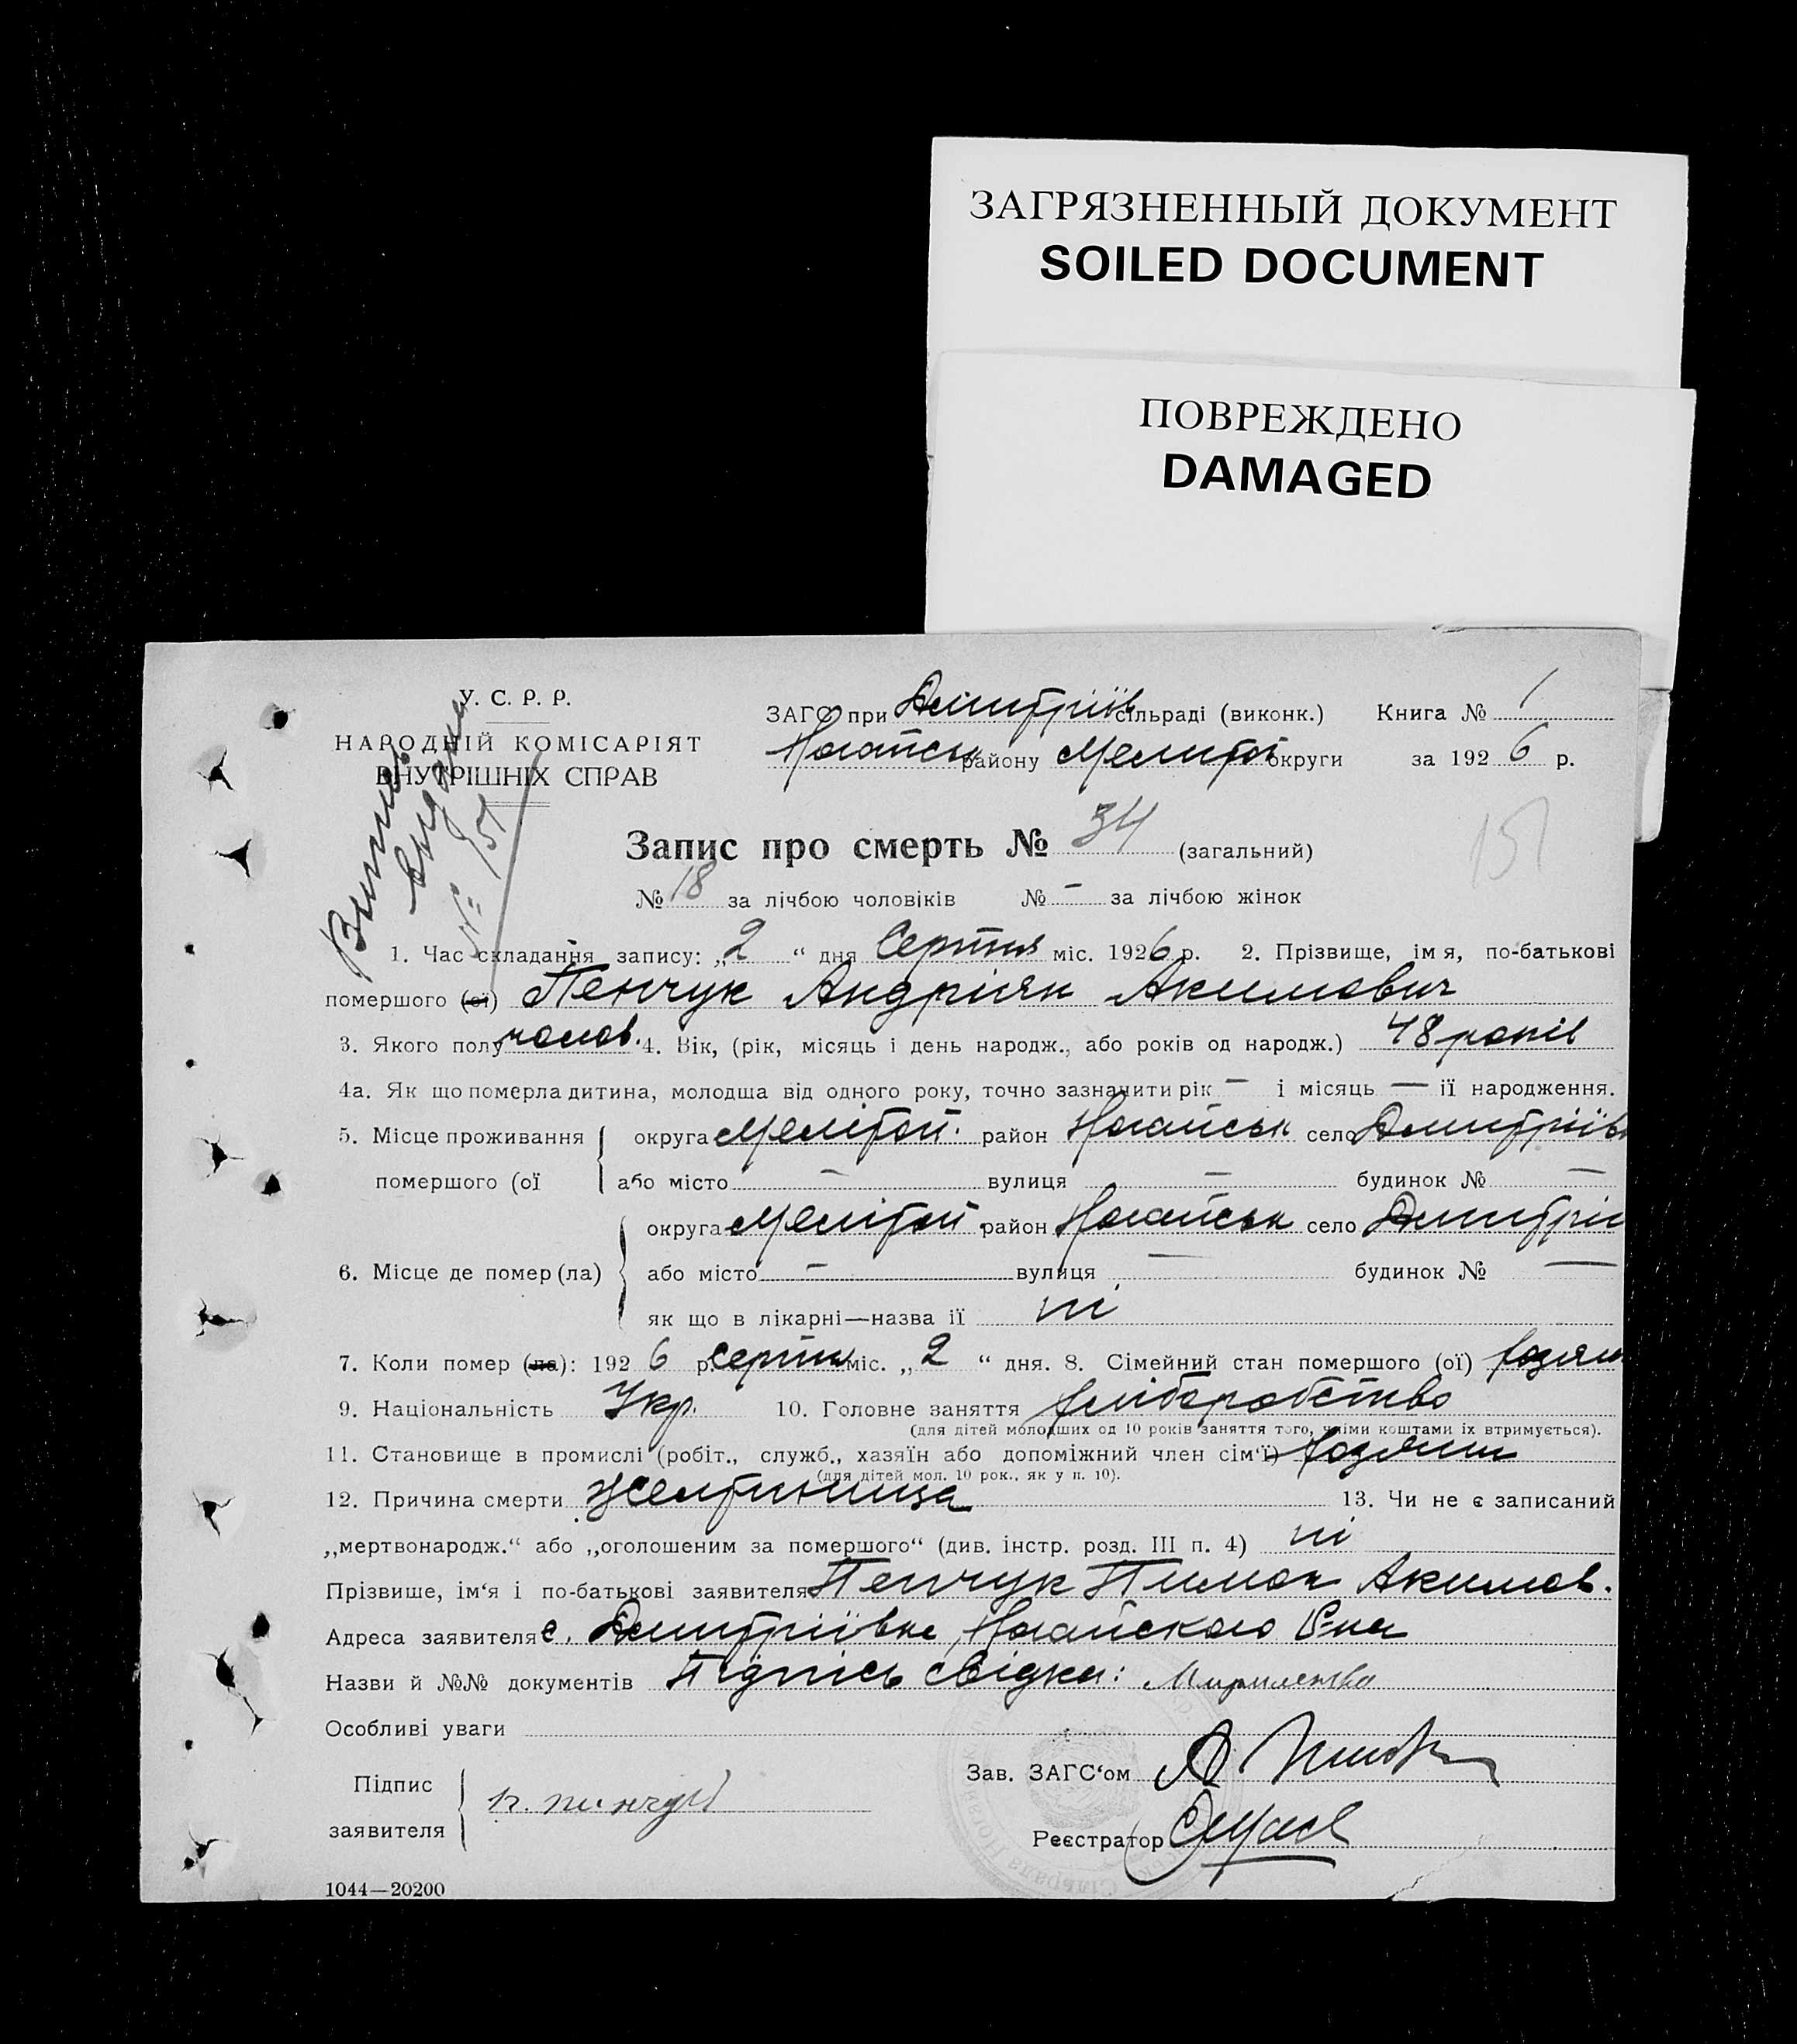 ЗАГРЯЗНЕННЫЙ ДОКУМЕНТ
SOILED DOCUMENT
ПОВРЕЖДЕНО
DAMAGED
У. С. Р. Р.
НАРОДНІЙ КОМІСАРІЯТ
ВНУТРІШНІХ СПРАВ
ЗАГС при Дмитріїв сільраді (виконк.) Книга № 1
Ногайськ району Мелітоп округи за 1926 р.
№ 151
Запис про смерть № 34 (загальний)
151
№ 18 за лічбою чоловіків № — за лічбою жінок
1. Час складання запису: „2“ дня Серпня міс. 1926 р. 2. Прізвище, ім я, по-батькові
помершого (ої) Пенчук Андріян Акимович
3. Якого полу чолов. 4. Вік, (рік, місяць і день народж., або років од народж.) 48 років
4а. Як що померла дитина, молодша від одного року, точно зазначити рік — і місяць — ії народження.
5. Місце проживання округа Мелітоп. район Ногайськ село Дмитріївк
помершого (ої або місто — вулиця — будинок № —
округа Мелітоп. район Ногайськ село Дмитрії
6. Місце де помер (ла) або місто — вулиця — будинок № —
як що в лікарні—назва ії ні
7. Коли помер (ла): 1926 р. Серпня міс. „2“ дня. 8. Сімейний стан помершого (ої)
9. Національність Укр. 10. Головне заняття хліборобство
(для дітей молодших од 10 років заняття того, чиіми коштами іх втримується).
11. Становище в промислі (робіт., служб., хазяїн або допоміжний член сім‘ї)
(для дітей мол. 10 рок., як у п. 10).
12. Причина смерти Желтиница 13. Чи не є записаний
„мертвонародж.“ або „оголошеним за помершого“ (див. інстр. розд. III п. 4) ні
Прізвише, ім‘я і по-батькові заявителя Пенчук Пимон Акимов.
Адреса заявителя с. Дмитріївка Ногайского Р-на
Назви й №№ документів Підпісь свідка:
Особливі уваги
Зав. ЗАГС‘ом
Підпис
заявителя
Реєстратор
1044—20200